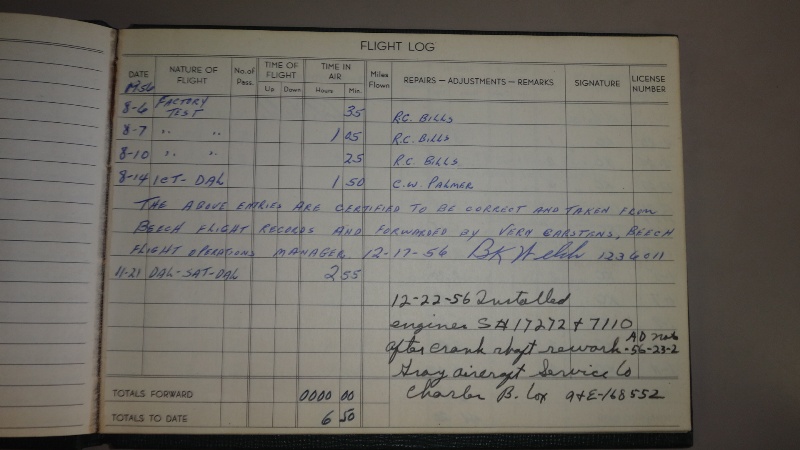 FLIGHT LOG
DATE NATURE OF FLIGHT No. of Pass. TIME OF FLIGHT Up Down TIME IN AIR Hours Min. Miles Flown REPAIRS — ADJUSTMENTS — REMARKS SIGNATURE LICENSE NUMBER
1956
8-6 FACTORY TEST 35 R.C. BILLS
8-7 " " 1 05 R.C. BILLS
8-10 " " 25 R.C. BILLS
8-14 ICT- DAL 1 50 C.W. PALMER
THE ABOVE ENTRIES ARE CERTIFIED TO BE CORRECT AND TAKEN FROM
BEECH FLIGHT RECORDS AND FORWARDED BY VERN CARSTENS, BEECH
FLIGHT OPERATIONS MANAGER. 12-17-56 BK Welch 1236011
11-21 DAL-SAT-DAL 2 55
12-22-56 Installed
engines S# 17272 + 7110
after crank shaft rework - AD note 56-23-2
Gray aircraft Service Co
Charles B. Cox A+E-168552
TOTALS FORWARD 0000 00
TOTALS TO DATE 6 50